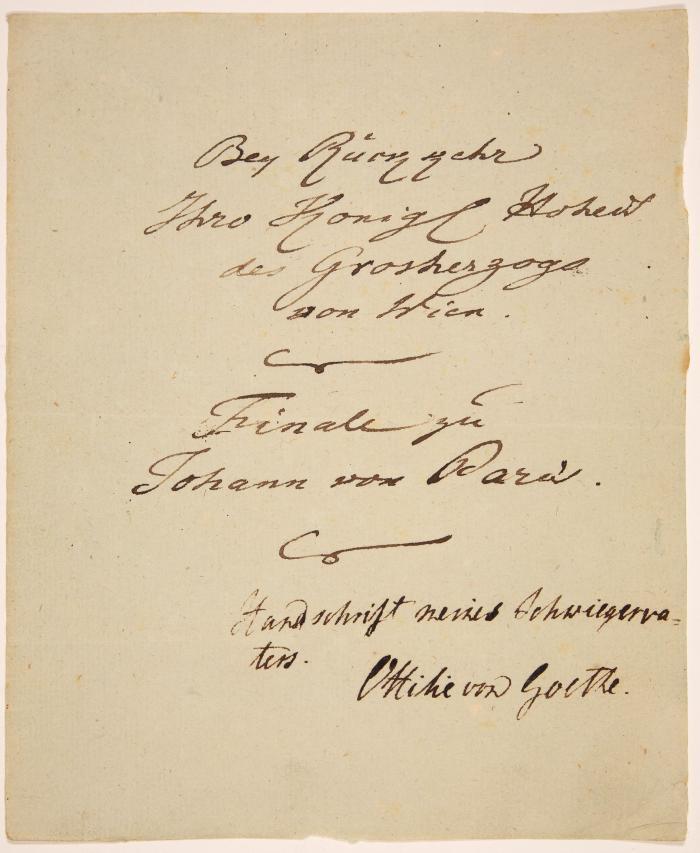 Bey Rückkehr
Ihro Königl Hoheit
des Grosherzogs
von Wien.
Finale zu
Johann von Paris.
Handschrift meines Schwiegerva-
ters.
Ottilie von Goethe.